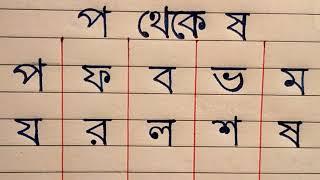 প থেকে ষ
প ফ ব ভ ম
য র ল শ ষ